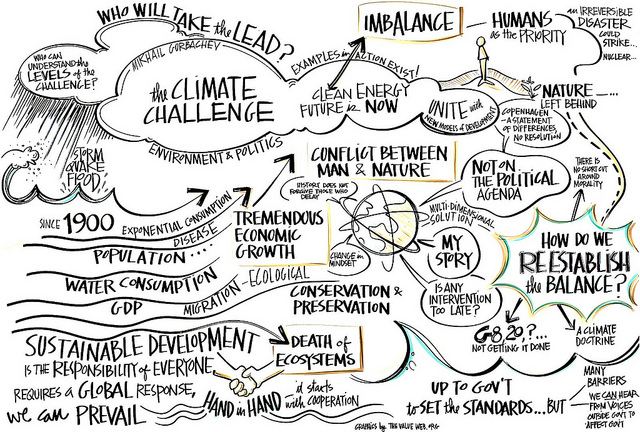 WHO WILL TAKE the LEAD?
MIKHAIL GORBACHEV
WHO CAN
UNDERSTAND the
LEVELS of the
CHALLENGE?
the CLIMATE
CHALLENGE
ENVIRONMENT & POLITICS
STORM
QUAKE
FLOOD
IMBALANCE
HUMANS
as the PRIORITY
an IRREVERSIBLE
DISASTER
COULD
STRIKE...
NUCLEAR...
EXAMPLES in ACTION EXIST!
CLEAN ENERGY
FUTURE is NOW
UNITE with
NEW MODELS of DEVELOPMENT
NATURE
LEFT BEHIND
COPENHAGEN
- A STATEMENT
OF DIFFERENCES,
NO RESOLUTION
CONFLICT BETWEEN
MAN & NATURE
HISTORY DOES NOT
FORGIVE THOSE WHO
DELAY
NOT ON...
THE POLITICAL
AGENDA
THERE IS
NO SHORT CUT
AROUND
MORALITY
SINCE 1900
EXPONENTIAL CONSUMPTION
DISEASE
POPULATION...
WATER CONSUMPTION
GDP
MIGRATION - ECOLOGICAL
TREMENDOUS
ECONOMIC
GROWTH
CHANGE in
MINDSET
MULTI-DIMENSIONAL
SOLUTION
MY
STORY
IS ANY
INTERVENTION
TOO LATE?
HOW DO WE
REESTABLISH
the BALANCE?
CONSERVATION &
PRESERVATION
G8, 20,?...
NOT GETTING IT DONE
A CLIMATE
DOCTRINE
SUSTAINABLE DEVELOPMENT
IS THE RESPONSIBILITY of EVERYONE
REQUIRES a GLOBAL RESPONSE,
we can PREVAIL
DEATH of
ECOSYSTEMS
HAND in HAND
it starts
with COOPERATION
UP TO GOV'T
to SET the STANDARDS...BUT
MANY
BARRIERS
WE CAN HEAR
FROM VOICES
OUTSIDE GOV'T TO
AFFECT GOV'T
GRAPHICS by: THE VALUE WEB.ORG